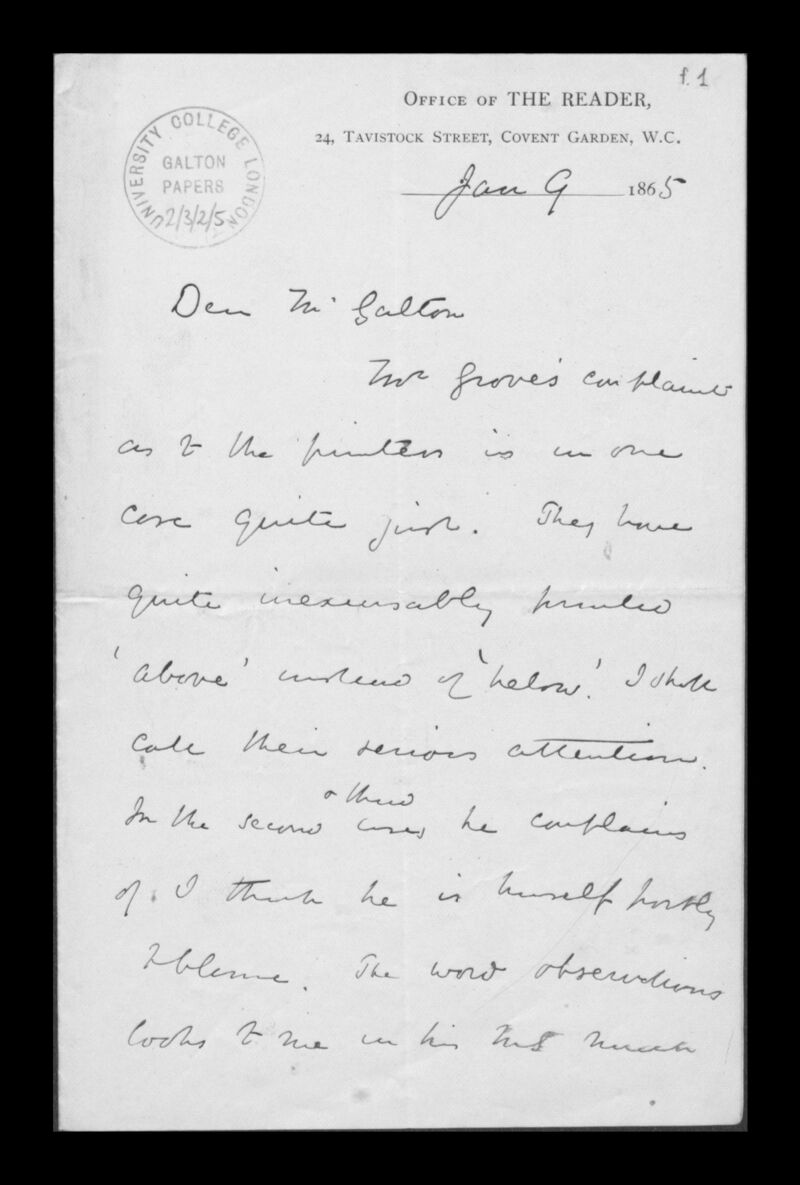 f. 1
OFFICE OF THE READER,
24, TAVISTOCK STREET, COVENT GARDEN, W.C.
Jan 9 1865
UNIVERSITY COLLEGE LONDON
GALTON
PAPERS
2/3/2/5
Dear Mr Galton
Mr Grove's complaint
as to the printers is in one
case quite just. They have
quite inexcusably printed
'above' instead of 'below'. I shall
call their serious attention.
& third
In the second cases he complains
of I think he is himself partly
to blame. The word observations
looks to me in his MS much